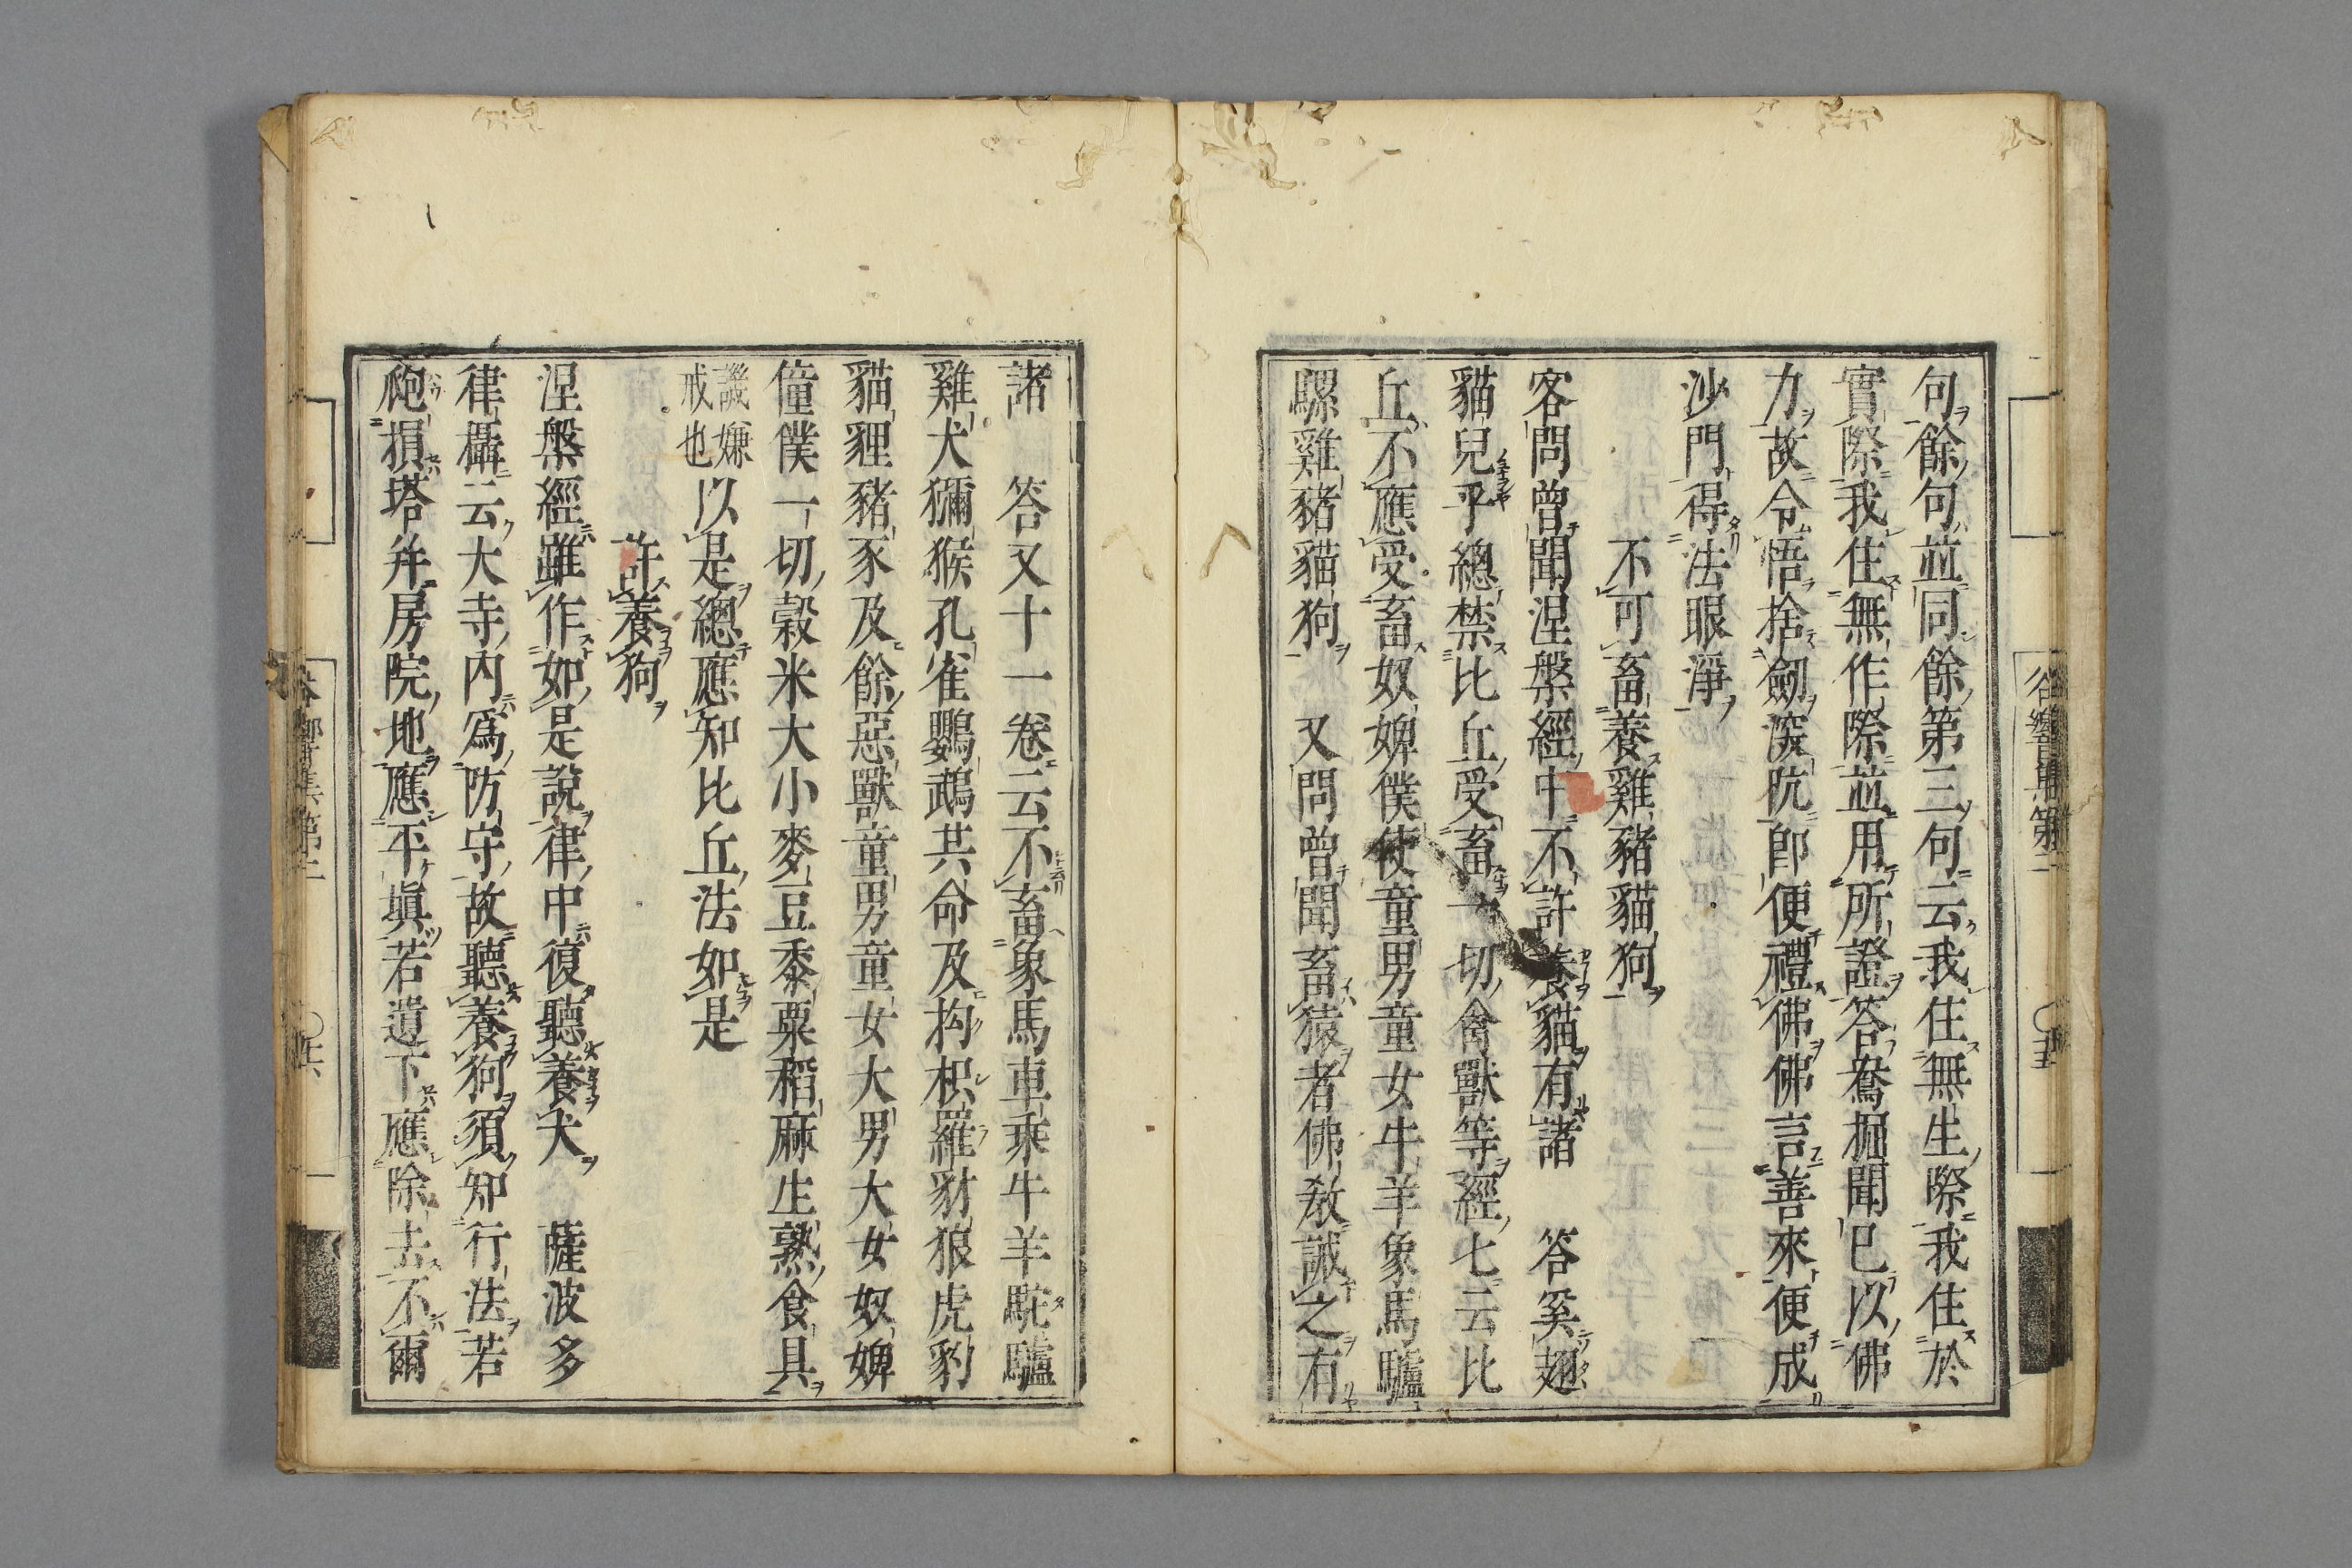 句餘句並同餘第三句云我住無生際我住於
實際我住無作際並用所證答鴦掘聞已以佛
力故令悟捨劒深阬即便禮佛佛言善來便成
沙門得法眼淨
不可畜養雞豬貓狗
客問曾聞涅槃經中不許養貓有諸　答奚翅
貓兒乎總禁比丘受畜一切禽獸等經七云比
丘不應受畜奴婢僕使童男童女牛羊象馬驢
騾雞豬貓狗　又問曾聞畜猿者佛教誡之有
諸　答又十一卷云不畜象馬車乘牛羊駝驢
雞犬獼猴孔雀鸚鵡共命及拘枳羅豺狼虎豹
貓狸豬豕及餘惡獸童男童女大男大女奴婢
僮僕一切穀米大小麥豆黍粟稻麻生熟食具
譏嫌戒也以是總應知比丘法如是
許養狗
涅槃經雖作如是說律中復聽養犬　薩波多
律攝云大寺內爲防守故聽養狗須知行法若
爮損塔并房院地應平塡若遺下應除去不爾
谷響集第二　〇五
谷響集第二　〇六